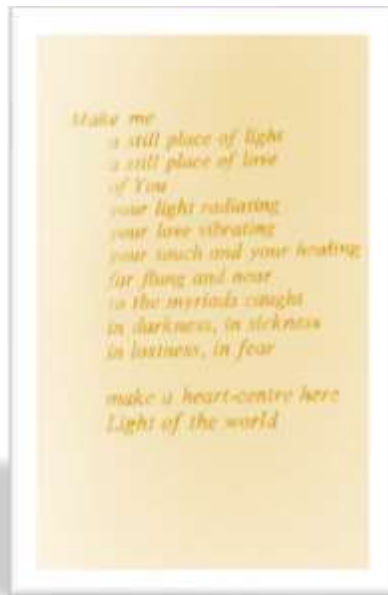 Make me
a still place of light
a still place of love
of You
your light radiating
your love vibrating
your touch and your healing
far flung and near
to the myriads caught
in darkness, in sickness
in lostness, in fear
make a heart-centre here
Light of the world